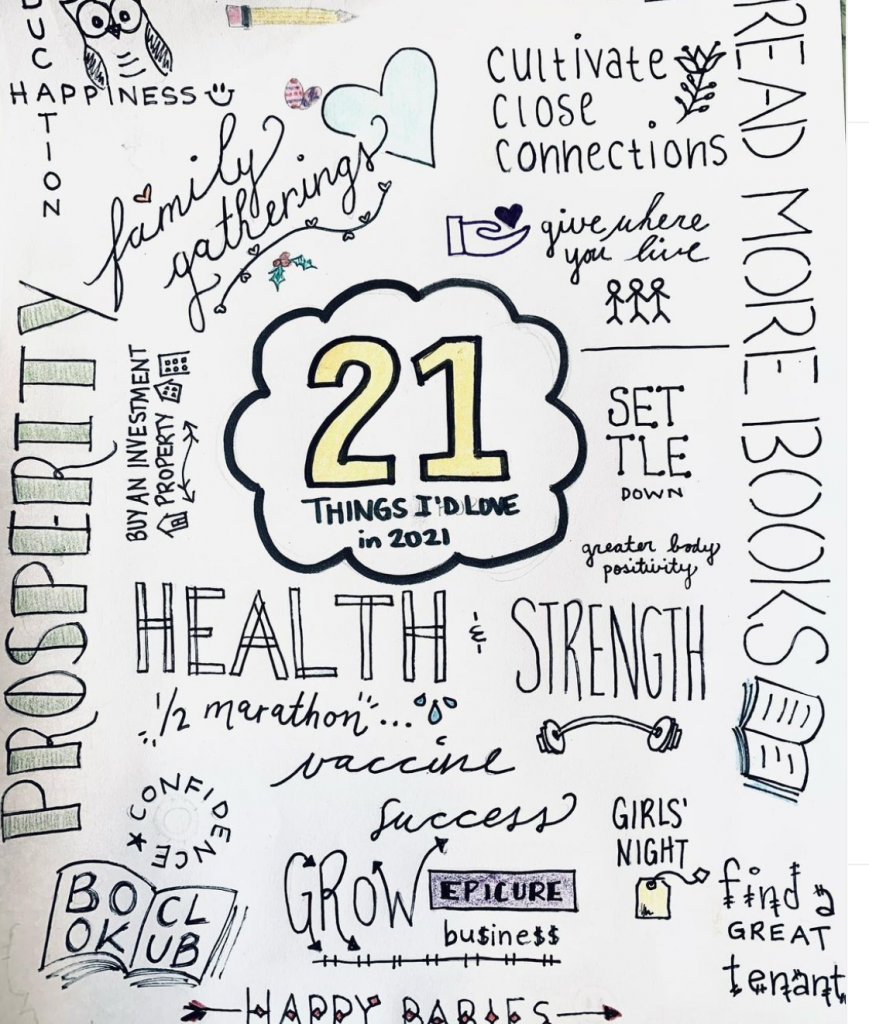 DUCATION
HAPPINESS
family
gatherings
cultivate
close
connections
give where
you live
READ MORE BOOKS
PROSPERITY
BUY AN INVESTMENT
PROPERTY
21
THINGS I'D LOVE
in 2021
SET
TLE
DOWN
greater body
positivity
HEALTH & STRENGTH
1/2 marathon...
vaccine
CONFIDENCE
success
GROW EPICURE
bu$ine$$
GIRLS'
NIGHT
BO
OK
CL
UB
find a
GREAT
tenant
HAPPY BABIES